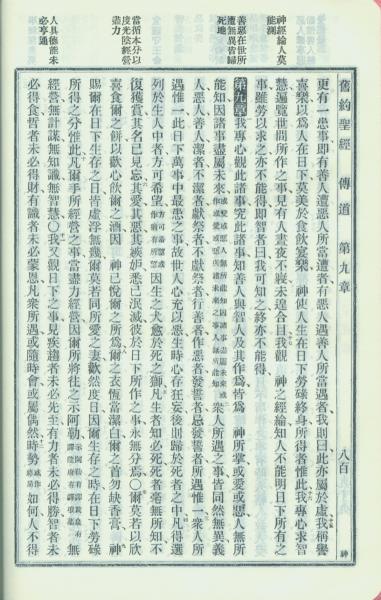 舊約聖經 傳道 第九章 八百 神
神經綸人莫能測
善惡在世所遭無異皆歸死地
當循本分以度光陰經營盡力
人具德能未必亨通
更有一患事即有善人遭惡人所當遭者有惡人遇善人所當遇者我則曰此亦屬於虛我稱譽
喜樂以為人在日下莫美於食飲宴樂 神使人生在日下勞碌終身所得者惟此我專心求智
慧遍察世間所作之事見有人晝夜不寐未遑合目我觀 神之經綸知人不能明日下所有之
事雖勞以求之亦不能得即智者曰我可知之終亦不能得
第九章 我專心觀此諸事究此諸事知善人與智人及其作為皆為 神所掌或愛或惡人無所
能知因諸事盡屬未來 眾人所遇之事皆同然無異義
人惡人善人潔者不潔者獻祭者不獻祭者行善者作惡者發誓者忌發誓者所遇惟一眾人所
遇惟一此日下萬事中最惡之事故世人心充以惡生時心存狂妄後則歸於死者之中凡得選
列於生人中者方可希望 因生之犬愈於死之獅凡生者知必死死者毫無所知不
復獲賞其名已見忘其愛其惡其嫉妒悉已泯滅彼於日下所作之事永無分焉〇爾莫若以欣
喜食爾之餅以歡心飲爾之酒因 神已悅爾之所為爾之衣恆當潔白爾之首勿缺香膏 神
賜爾在日下生存之日皆虛浮無幾爾莫若同所愛之妻歡然度日因爾生存之時在日下勞碌
所得之分惟此凡爾手所經營之事當盡力經營因爾所將往之示阿勒 無
經營無計謀無知識無智慧〇我又觀日下之事見疾趨者未必先至有力者未必得勝智者未
必得食哲者未必得財有識者未必蒙恩凡眾所遇或隨時會或屬偶然時勢 如何人不得